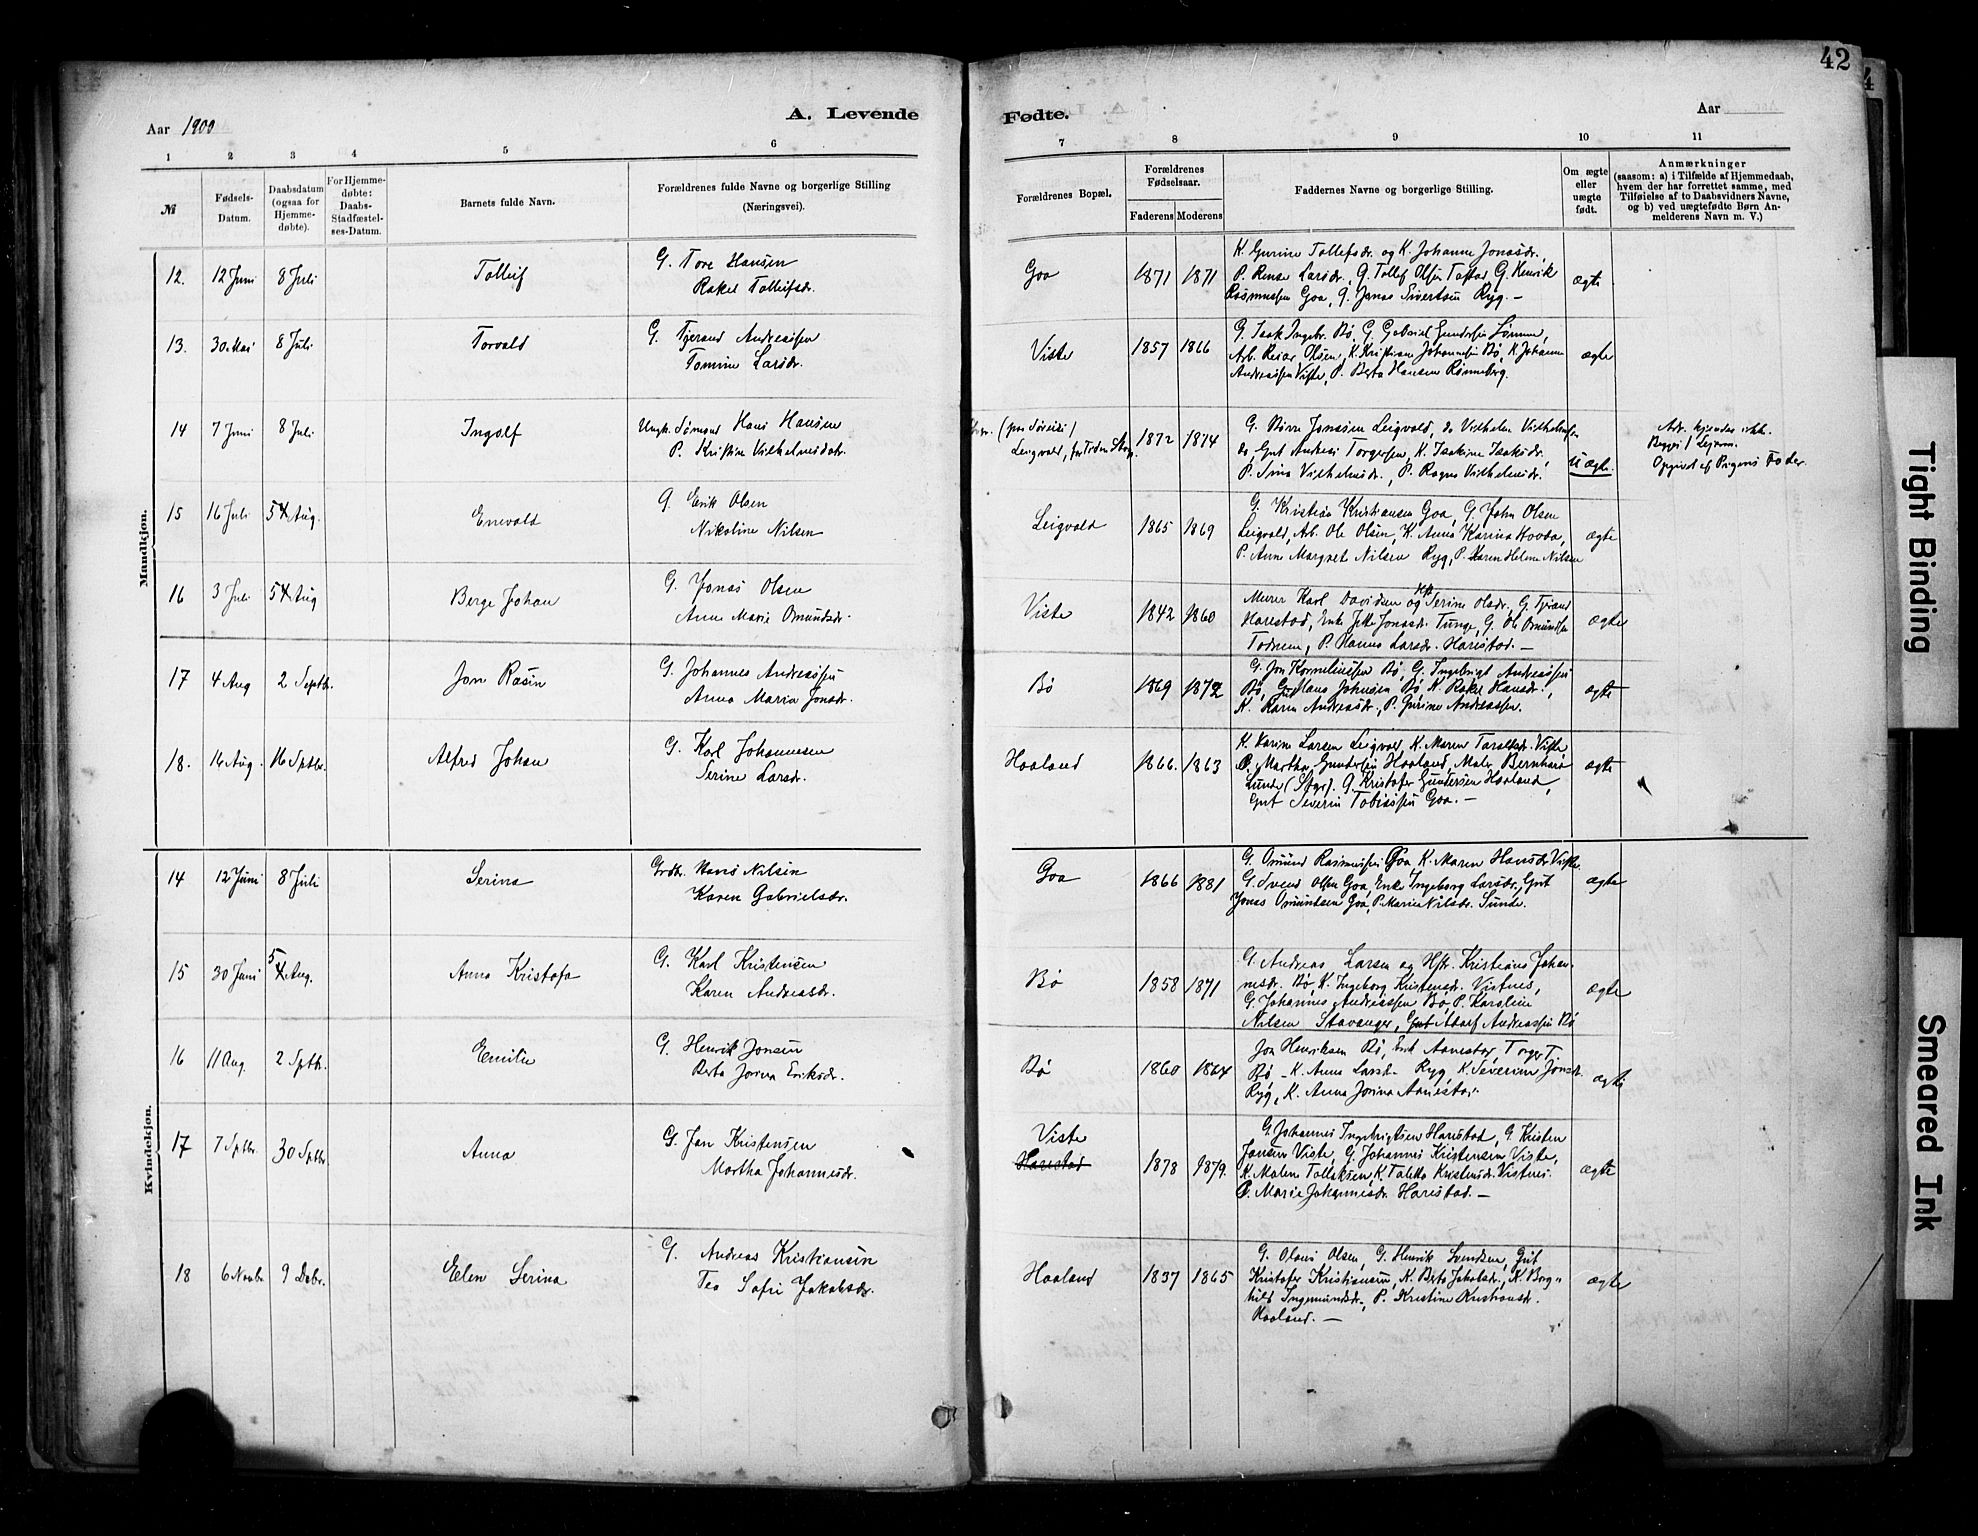 42
Aar 1900
A. Levende
Fødte.
Aar
1 2 3 4 5 6 7 8 9 10 11
№
Fødsels-
Datum.
Daabsdatum
(ogsaa for
Hjemme-
døbte).
For Hjemme-
døbte:
Daabs-
Stadfæstel-
ses-Datum.
Barnets fulde Navn.
Forældrenes fulde Navne og borgerlige Stilling
(Næringsvei).
Forældrenes Bopæl.
Forældrenes
Fødselsaar.
Faderens Moderens
Faddernes Navne og borgerlige Stilling.
Om ægte
eller
uægte
født.
Anmærkninger
(saasom: a) i Tilfælde af Hjemmedaab,
hvem der har forrettet samme, med
Tilføielse af to Daabsvidners Navne,
og b) ved uægtefødte Børn An-
melderens Navn m. V.)
Mandkjøn.
12. 12 Juni 8 Juli Tolleif G. Tore Hansen
Rakel Tolleifsdr.
Goa 1871 1871 ægte
K. Gurine Tollefsdr. og K. Johanne Jonasdr.,
P. Larsdr., G. Tollef Olsen G. Henrik
Rasmussen Goa, G. Jonas Sivertsen Ryg. —
13. 30 Mai 8 Juli Torvald G. Tjerand Andreassen
Tomine Larsdr.
Viste 1857 1866 ægte
G. Isak Ingebr. Bø, G. Gabriel Gundersen
Arb. Reiar Olsen, K. Kristiane Johannesen Bø, K. Johanne
Andreassen Viste, P. Berta Hansen Rønneberg.
14 7 Juni 8 Juli Ingolf Ungk. Sømand Hans Hansen
P. Kristine Vilhelmsdatr.
Leigvold, 1872 1874 uægte
G. Børre Jonassen Leigvold, do Vilhelm Vilhelmsen
do, Gut Andreas Torgersen, K. Isakine Isaksdr.
P. Sina Vilhelmsdr., P. Ragna Vilhelmsdr.
Adr. kjendes ikke.
Begges 1 Leierm.
Opgivet af Pigens Fader.
15 16 Juli 5 Aug. Enevald G. Erik Olsen
Nikoline Nilsen
Leigvold 1865 1869 ægte
G. Kristian Kristiansen Goa, G. John Olsen
Leigvold, Arb. Ole Olsen, K. Anna Karina
P. Anne Margret Nilsen Ryg, P. Karen Helene Nilsen
16 3 Juli 5 Aug Berge Johan G. Jonas Olsen
Anne Marie Omundsdr.
Viste 1842 1860 ægte
Murer Karl Davidsen og Serine Olsdr, G. Tjerand
Harestad, Enke Jonasdr. Tunge, G. Ole Omundsen
Todnem, P. Hanna Larsdr. Harestad. —
17 4 Aug 2 Septbr. Jon Rasin G. Johannes Andreassen
Anna Maria Jonsdr.
Bø 1869 1872 ægte
G. Jon Korneliussen Bø, G. Ingebrigt Andreassen
Bø, Gut Hans Johnsen Bø, K. Rakel Hansdr.,
K. Karen Andreasdr., P. Gurine Andreassen.
18. 14 Aug. 16 Sptbr. Alfred Johan G. Karl Johannesen
Serine Larsdr.
Haaland 1866. 1863 ægte
K. Karine Larsen Leigvold, K. Maren Taraldsdr. Viste
P. Martha Gundersen Haaland, Maler Bernhard
Lunde (Stgr). G. Kristofer Gundersen Haaland,
Gut Severin Tobiassen Goa. —
Kvindekjøn.
14 12 Juni 8 Juli Serina Grdbr. Hans Nilsen
Karen Gabrielsdr.
Goa 1866 1881 ægte
G. Omund Rasmussen Goa K. Maren Hansdr Viste
G. Svend Olsen Goa, Enke Ingeborg Larsdr., Gut
Jonas Omundsen Goa, P. Marie Nilsdr. Sunde.
15 30 Juni 5 Aug. Anna Kristofa G. Karl Kristensen
Karen Andreasdr.
Bø 1858 1871 ægte
G. Andreas Larsen og Hstr. Kristiane Johan-
nesdr. Bø, K. Ingeborg Kristensdr. Vistnes,
G. Johannes Andreassen Bø, P. Karoline
Nilsen Stavanger, Gut Adolf Andreassen Bø
16 11 Aug. 2 Sptb. Emilie G. Henrik Jonsen
Berta Jorina Eriksdr.
Bø 1860 1864 ægte
Jon Henriksen Bø, Erik Aanestad, Torger T.
Bø — K. Anna Larsd. Ryg, K. Severine Jonsdr.
Ryg, K. Anna Jorina Aanestad.
17 7 Sptbr. 30 Sptbr Anna G. Jan Kristensen
Martha Johannesdr.
Viste
Harestad 1878 1879. ægte
G. Johannes Ingebrigtsen Harestad, G. Kristen
Jansen Viste, G. Johannes Kristensen Viste,
K. Malene Tollaksen, K. Taletta Kristensdr. Vistnes.
P. Marie Johannesdr. Harestad. —
18 6 Novbr 9 Debr. Elen Serina G. Andreas Kristiansen
Tea Sofie Jakobsdr.
Haaland 1837 1865 ægte
G. Olaus Olsen, G. Henrik Svendsen, Gut
Kristofer Kristiansen, K. Berta Jakobsdr., K. Borg-
hild Ingemundsdr., P. Kristine Kristiansdr.
Haaland. —
Tight Binding
Smeared Ink